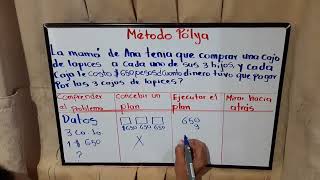 Método Pólya
La mamá de Ana tenia que comprar una caja
de lapices a cada uno de sus 3 hijos, y cada
Caja le costo $650 pesos ¿Cuanto dinero tuvo que pagar
Por las 3 cajas de lapices?
Comprender el Problema
Concebir un plan
Ejecutar el plan
Mirar hacia atrás
Datos
3 caja
1 $ 650
?
$650 650 650
X
650
3